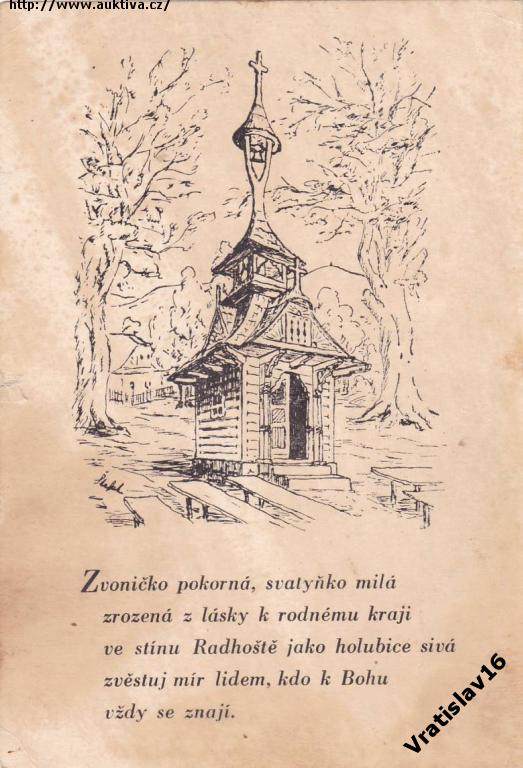 http://www.auktiva.cz/
Zvoničko pokorná, svatyňko milá
zrozená z lásky k rodnému kraji
ve stínu Radhoště jako holubice sivá
zvěstuj mír lidem, kdo k Bohu
vždy se znají.
Vratislav16